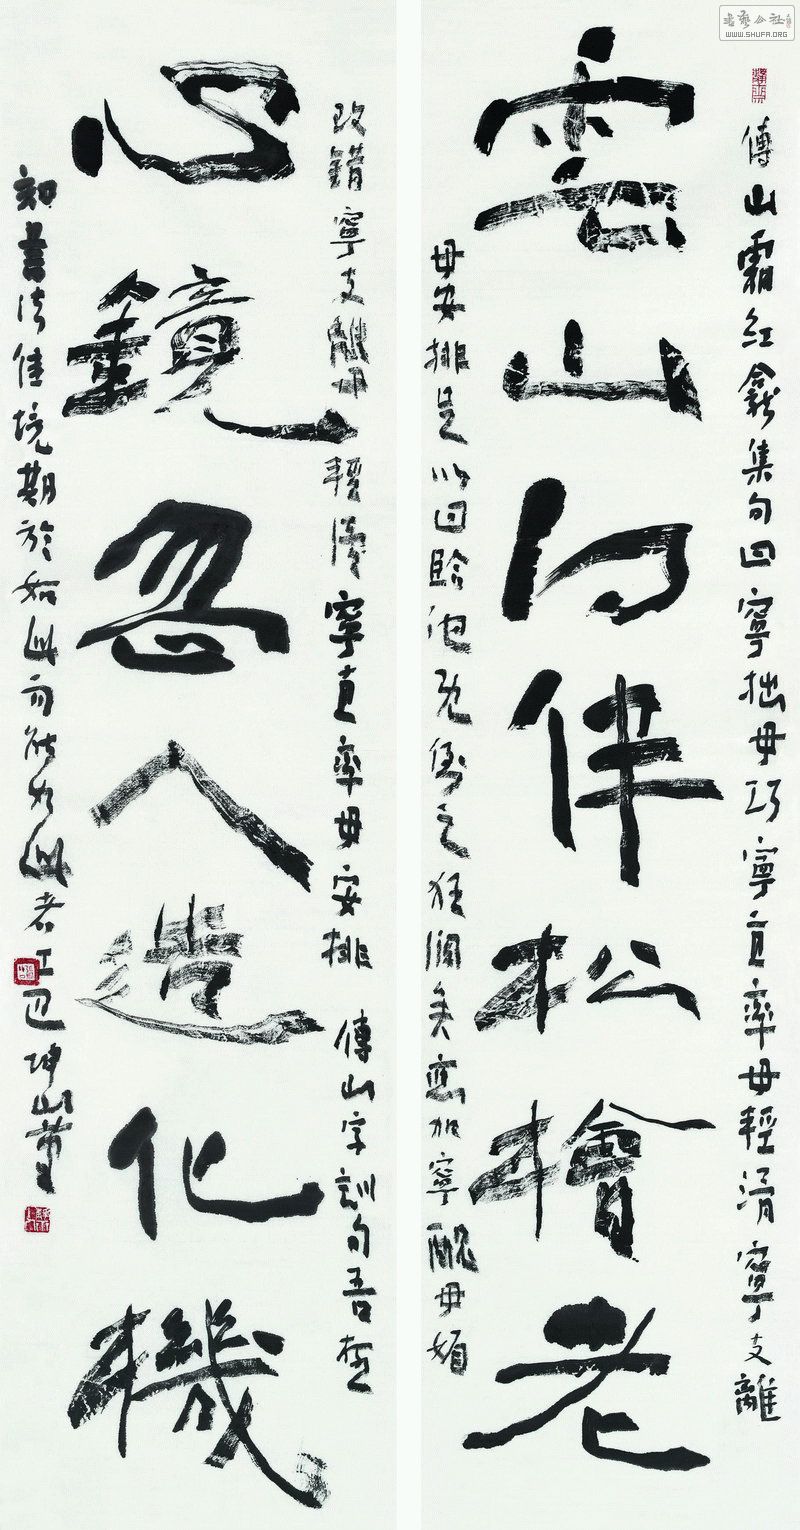 傅山霜紅龕集句曰寧拙毋巧寧直率毋輕滑寧支離
雲山伴松檜老
毋安排足以回臨池既倒之狂瀾矣應加寧醜毋媚
改錯寧支離毋輕滑寧直率毋安排 傅山字訓句吾
心鏡忽入造化機
知書法佳境期於如此有能如此者
WWW.SHUFA.ORG